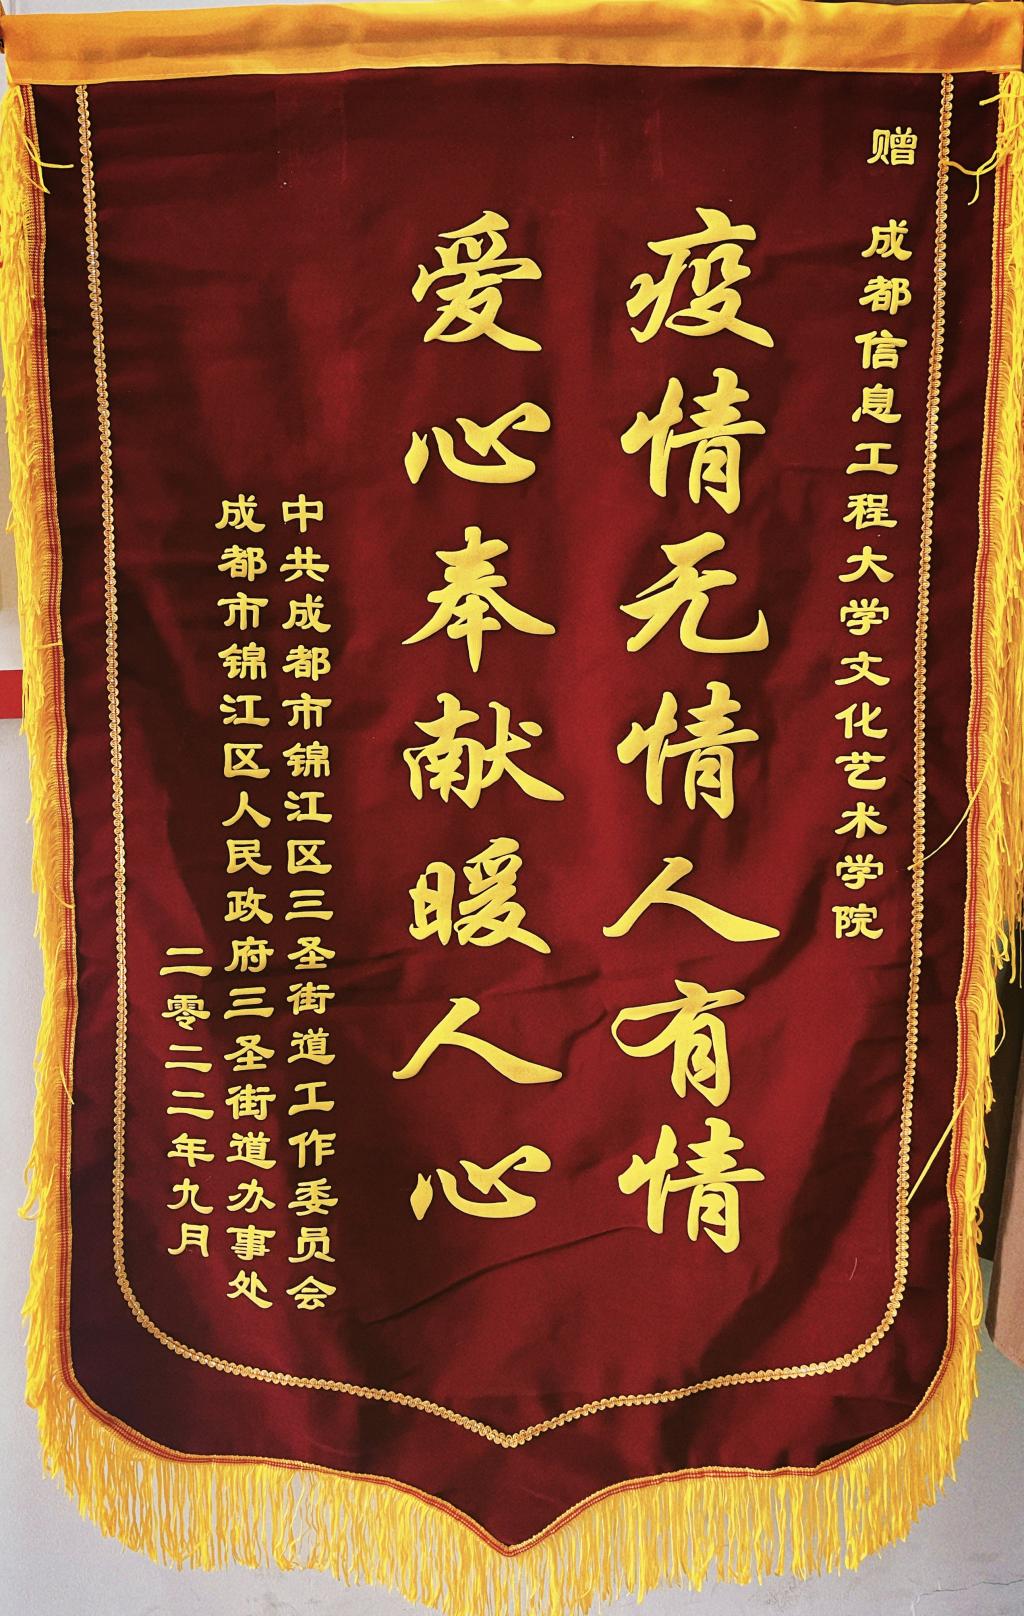 赠 成都信息工程大学文化艺术学院
疫情无情人有情
爱心奉献暖人心
中共成都市锦江区三圣街道工作委员会
成都市锦江区人民政府三圣街道办事处
二零二二年九月